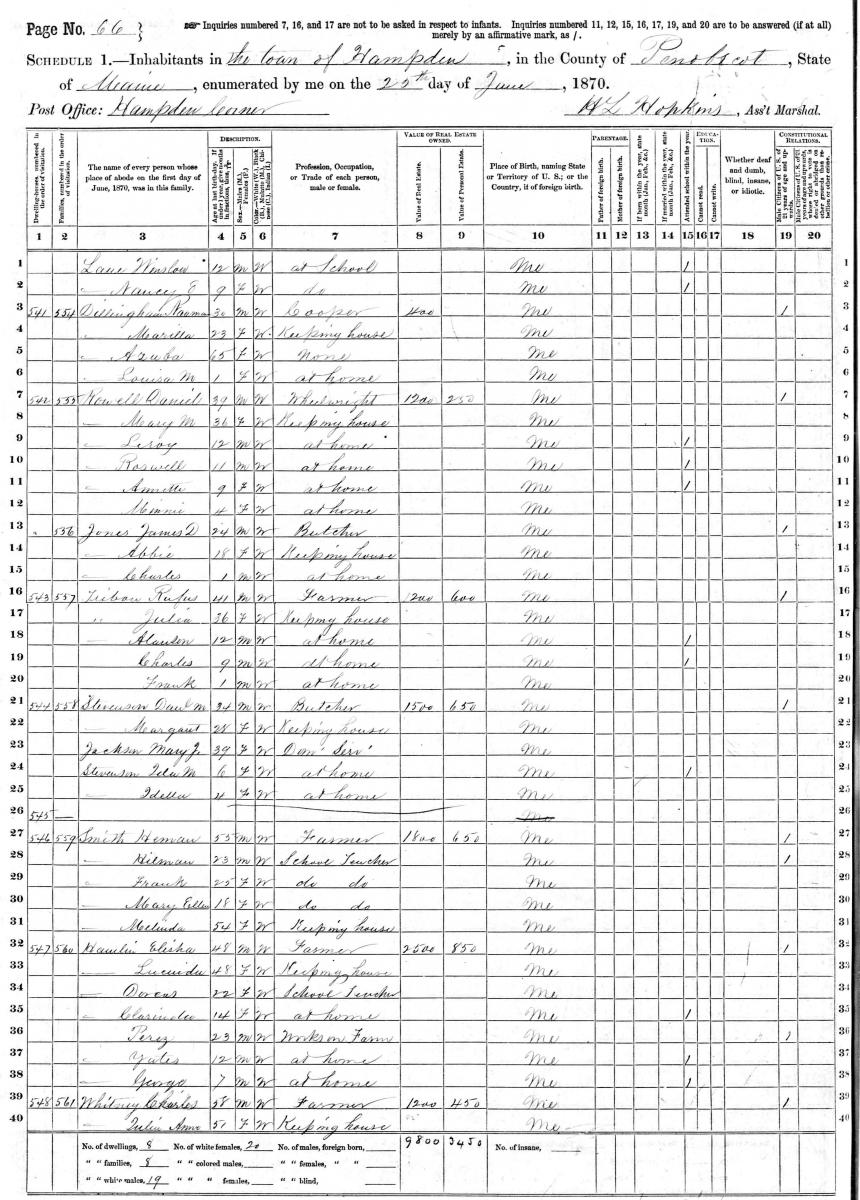 Page No. 66 } ☞ Inquiries numbered 7, 16, and 17 are not to be asked in respect to infants. Inquiries numbered 11, 12, 15, 16, 17, 19, and 20 are to be answered (if at all) merely by an affirmative mark, as /.
SCHEDULE 1.—Inhabitants in the town of Hampden, in the County of Penobscot, State
of Maine, enumerated by me on the 25th day of June, 1870.
Post Office: Hampden Corner H L Hopkins, Ass't Marshal.
Dwelling-houses, numbered in the order of visitation.
Families, numbered in the order of visitation.
The name of every person whose place of abode on the first day of June, 1870, was in this family.
DESCRIPTION.
Age at last birth-day. If under 1 year, give months in fractions, thus, 3/12
Sex.—Males (M.), Females (F.)
Color.—White (W.), Black (B.), Mulatto (M.), Chinese (C.), Indian (I.)
Profession, Occupation, or Trade of each person, male or female.
VALUE OF REAL ESTATE OWNED.
Value of Real Estate.
Value of Personal Estate.
Place of Birth, naming State or Territory of U. S.; or the Country, if of foreign birth.
PARENTAGE.
Father of foreign birth.
Mother of foreign birth.
If born within the year, state month (Jan., Feb., &c.)
If married within the year, state month (Jan., Feb., &c.)
Attended school within the year.
EDUCATION.
Cannot read.
Cannot write.
Whether deaf and dumb, blind, insane, or idiotic.
CONSTITUTIONAL RELATIONS.
Male Citizens of U. S. of 21 years of age and upwards.
Male Citizens of U. S. of 21 years of age and upwards, whose right to vote is denied or abridged on other grounds than rebellion or other crime.
1 2 3 4 5 6 7 8 9 10 11 12 13 14 15 16 17 18 19 20
1 Lane Winslow 12 M W at School Me / 1
2 " Nancy E 9 F W do Me / 2
3 541 554 Dillingham 30 M W Cooper 400 Me / 3
4 " Marilla 23 F W Keeping house Me 4
5 " Azuba 65 F W None Me 5
6 " Louisa M 1 F W at home Me 6
7 542 555 Rowell Daniel 39 M W Wheelwright 1200 250 Me / 7
8 " Mary M 36 F W Keeping house Me 8
9 " Leroy 12 M W at home Me / 9
10 " Roswell 11 M W at home Me / 10
11 " Annette 9 F W at home Me / 11
12 Minnie 4 F W at home Me 12
13 " 556 Jones James D 24 M W Butcher Me / 13
14 — Abbie 18 F W Keeping house Me 14
15 — Charles 1 M W at home Me 15
16 543 557 Tribou Rufus 41 M W Farmer 1200 600 Me / 16
17 " Julia 36 F W Keeping house Me 17
18 — Alanson 12 M W at home Me / 18
19 Charles 9 M W at home Me / 19
20 Frank 1 M W at home Me 20
21 544 558 Stevenson Danl M 34 M W Butcher 1500 650 Me / 21
22 Margaret 28 F W Keeping house Me 22
23 Jackson Mary J 39 F W Dom' Serv' Me 23
24 Stevenson Ida M 6 F W at home Me / 24
25 " Idella 4 F W at home Me 25
26 545 — Me 26
27 546 559 Smith Heman 55 M W Farmer 1800 650 Me / 27
28 — Hilman 23 M W School Teacher Me / 28
29 — Frank 25 F W do do Me 29
30 — Mary Ellen 18 F W do do Me 30
31 — Melinda 54 F W Keeping house Me 31
32 547 560 Hamlin Elisha 48 M W Farmer 2500 850 Me / 32
33 — Lucinda 48 F W Keeping house Me 33
34 — Dorcas 22 F W School Teacher Me 34
35 " Clarinda 14 F W at home Me / 35
36 Perez 23 M W Works on Farm Me / 36
37 " Yates 12 M W at home Me / 37
38 " George 7 M W at home Me / 38
39 548 561 Whitney Charles 58 M W Farmer 1200 450 Me / 39
40 — Julia Ann 51 F W Keeping house Me 40
No. of dwellings, 8 No. of white females, 20 No. of males, foreign born, 9800 3450 No. of insane,
" " families, 8 " " colored males, " " females, " "
" " white males, 19 " " " females, " " blind,